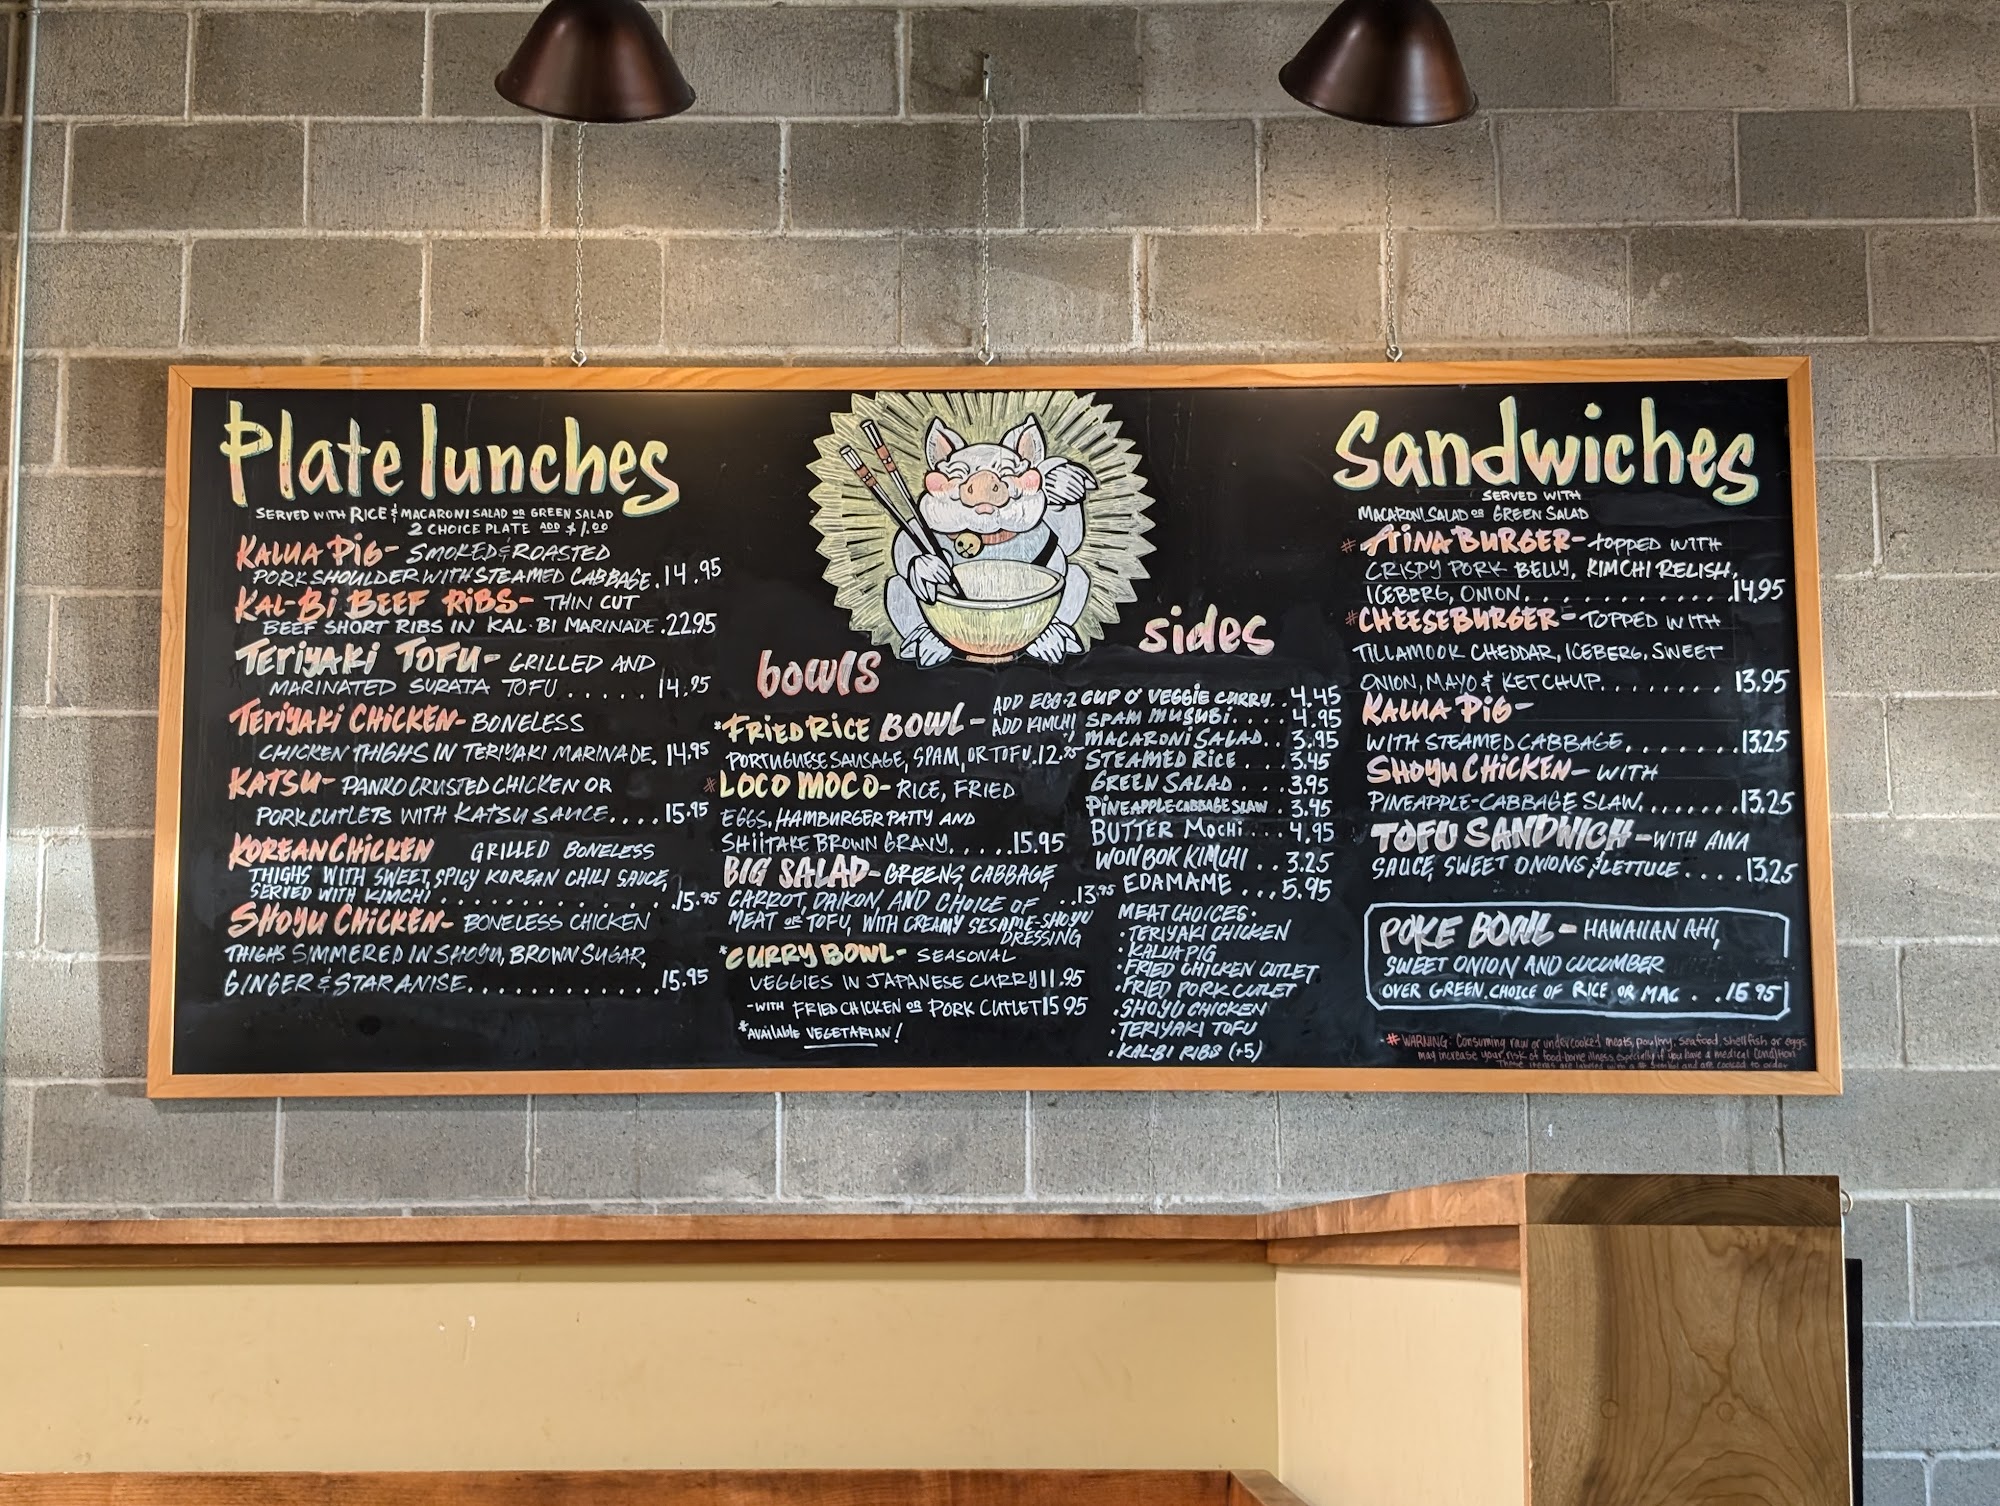 Plate lunches
SERVED WITH RICE & MACARONI SALAD OR GREEN SALAD
2 CHOICE PLATE ADD $1.00
KALUA PIG- SMOKED & ROASTED
PORK SHOULDER WITH STEAMED CABBAGE. 14.95
KAL-BI BEEF RIBS- THIN CUT
BEEF SHORT RIBS IN KAL-BI MARINADE. 22.95
TERIYAKI TOFU- GRILLED AND
MARINATED SURATA TOFU ..... 14.95
TERIYAKI CHICKEN- BONELESS
CHICKEN THIGHS IN TERIYAKI MARINADE. 14.95
KATSU- PANKO CRUSTED CHICKEN OR
PORK CUTLETS WITH KATSU SAUCE.... 15.95
KOREAN CHICKEN GRILLED BONELESS
THIGHS WITH SWEET, SPICY KOREAN CHILI SAUCE,
SERVED WITH KIMCHI ............. 15.95
SHOYU CHICKEN- BONELESS CHICKEN
THIGHS SIMMERED IN SHOYU, BROWN SUGAR,
GINGER & STAR ANISE............. 15.95
bowls
*FRIED RICE BOWL- ADD EGG-2
ADD KIMCHI
PORTUGUESE SAUSAGE, SPAM, OR TOFU. 12.95
#LOCO MOCO- RICE, FRIED
EGGS, HAMBURGER PATTY AND
SHIITAKE BROWN GRAVY..... 15.95
BIG SALAD- GREENS, CABBAGE,
CARROT, DAIKON, AND CHOICE OF ..13.95
MEAT OR TOFU, WITH CREAMY SESAME-SHOYU
DRESSING
*CURRY BOWL- SEASONAL
VEGGIES IN JAPANESE CURRY 11.95
-WITH FRIED CHICKEN OR PORK CUTLET 15.95
*AVAILABLE VEGETARIAN!
sides
CUP O' VEGGIE CURRY.. 4.45
SPAM MUSUBI.... 4.95
MACARONI SALAD.. 3.95
STEAMED RICE ... 3.45
GREEN SALAD ... 3.95
PINEAPPLE-CABBAGE SLAW . 3.45
BUTTER MOCHI ... 4.95
WON BOK KIMCHI .. 3.25
EDAMAME ... 5.95
MEAT CHOICES.
• TERIYAKI CHICKEN
• KALUA PIG
• FRIED CHICKEN CUTLET
• FRIED PORK CUTLET
• SHOYU CHICKEN
• TERIYAKI TOFU
• KAL-BI RIBS (+5)
Sandwiches
SERVED WITH
MACARONI SALAD OR GREEN SALAD
# AINA BURGER- TOPPED WITH
CRISPY PORK BELLY, KIMCHI RELISH,
ICEBERG, ONION............ 14.95
#CHEESEBURGER- TOPPED WITH
TILLAMOOK CHEDDAR, ICEBERG, SWEET
ONION, MAYO & KETCHUP........ 13.95
KALUA PIG-
WITH STEAMED CABBAGE....... 13.25
SHOYU CHICKEN- WITH
PINEAPPLE-CABBAGE SLAW....... 13.25
TOFU SANDWICH- WITH AINA
SAUCE, SWEET ONIONS & LETTUCE .... 13.25
POKE BOWL- HAWAIIAN AHI,
SWEET ONION AND CUCUMBER
OVER GREEN. CHOICE OF RICE OR MAC . . 15.95
# WARNING: Consuming raw or undercooked meats, poultry, seafood, shellfish or eggs
may increase your risk of food-borne illness, especially if you have a medical condition
These items are labeled with a # symbol and are cooked to order